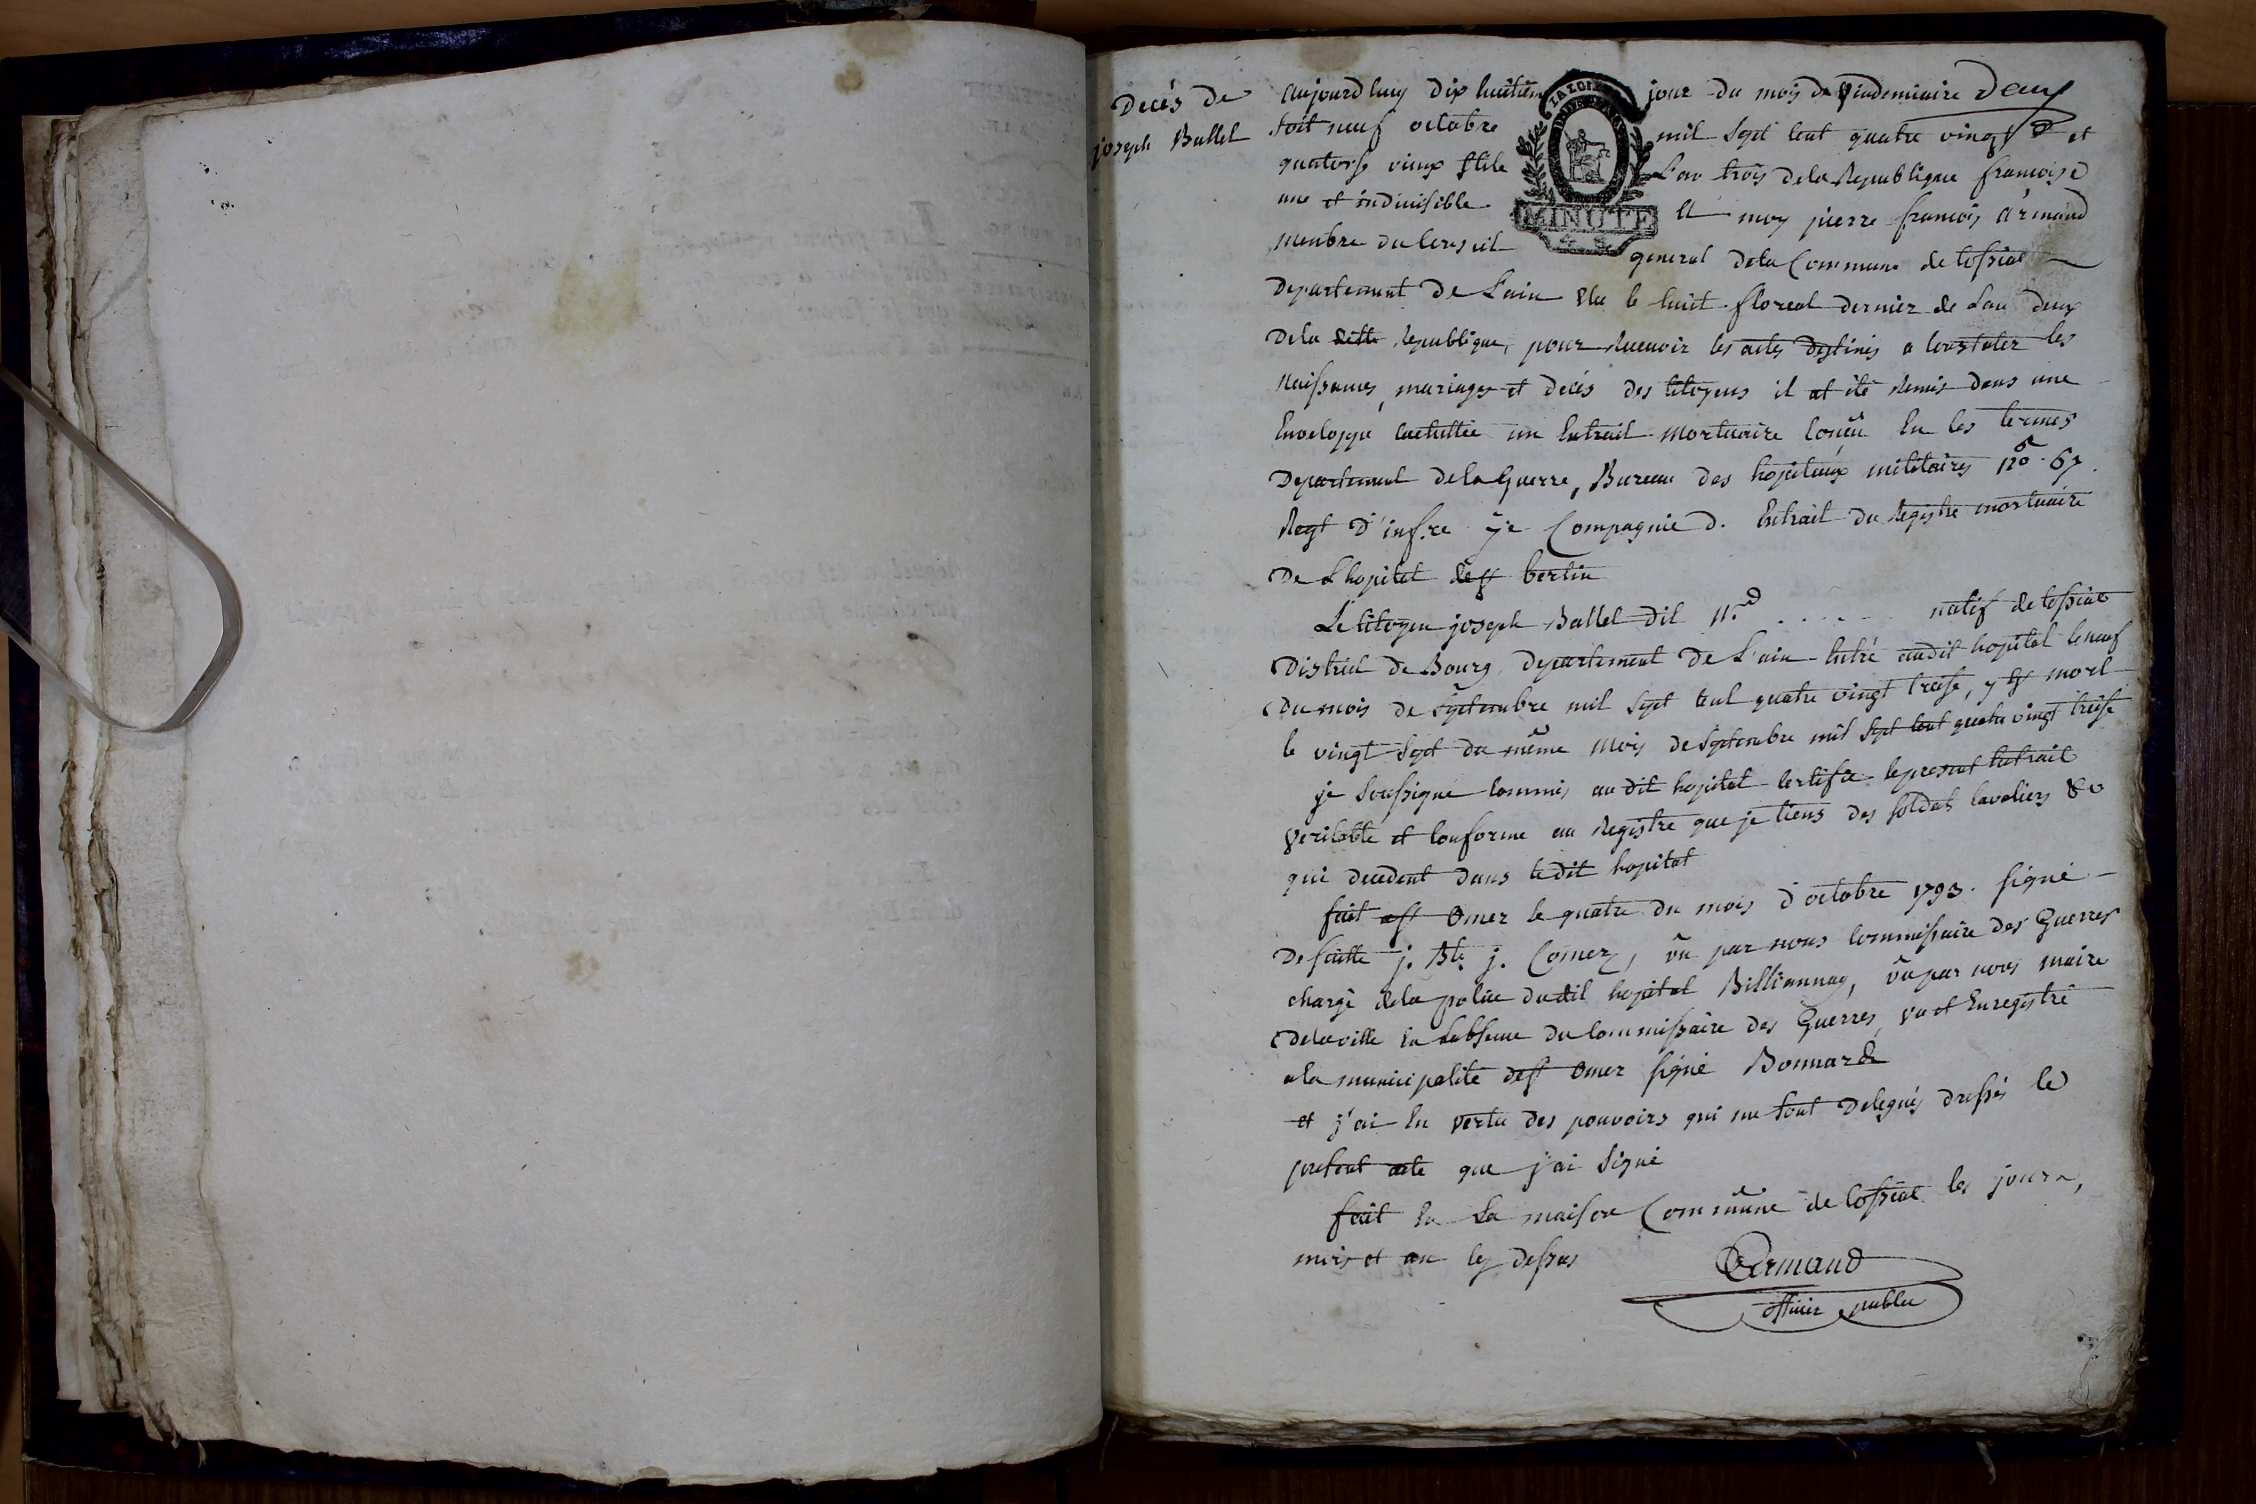 Decés de
joseph Ballet
aujourdhuy dix huitiem jour du mois de Vindemiaire
soit neuf octobre mil sept cent quatre vingt et
quatorse vieux stile L'an trois dela Republique francoise
une et indivisible et moy pierre francois armand
menbre du Conseil general dela Commune de Cossiat
Departement de L'ain elu le huit floreal dernier de Lan deux
Dela ditte Republique, pour Recevoir les actes destinés a Constater les
Naissances, mariages et decés des Citoyens il at été Remis dans une
Enveloppe Cachettée un Extrait mortuaire Conçu En Ces termes
Departement dela Guerre, Bureau des hopitaux militaires No. 67.
Regt d'infre 7e Compagnie D. Extrait du Registre mortuaire
De L'hopital de st bertin
Le Citoyen joseph Ballet dit natif de Cossiat
District de Bourg, departement de L'ain Entré audit hopital le neuf
Du mois de septembre mil sept cent quatre vingt treise, y est mort
le vingt sept du même mois de septembre mil sept cent quatre vingt treise
je soussigne Commis au dit hopital Certifie le present Extrait
Veritable et Conforme au Registre que je tiens des soldats Cavaliers &c
qui decedent dans le dit hopital
fait a st Omer le quatre du mois d'octobre 1793. signé
j. Bte j. Comez, vu par nous Commissaire des Guerres
chargé dela police du dit hopital Billiannay, vu par nous maire
Dela ville En Labsence du Commissaire des Guerres, vu et Enregistré
ala municipalite de st Omer signé Bonnard
et j'ai En vertu des pouvoirs qui me sont Delegués dressés le
present acte que j'ai signé
fait En La maison Commune de Cossiat les jour,
mois et an Cy dessus
Armand
officier public
MINUTE
LA LOI